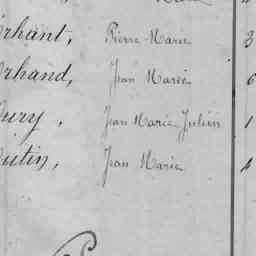 rhant, Pierre Marie 3
rhand, Jean Marie 6
ury, Jean Marie Julien 1
utin, Jean Marie 4